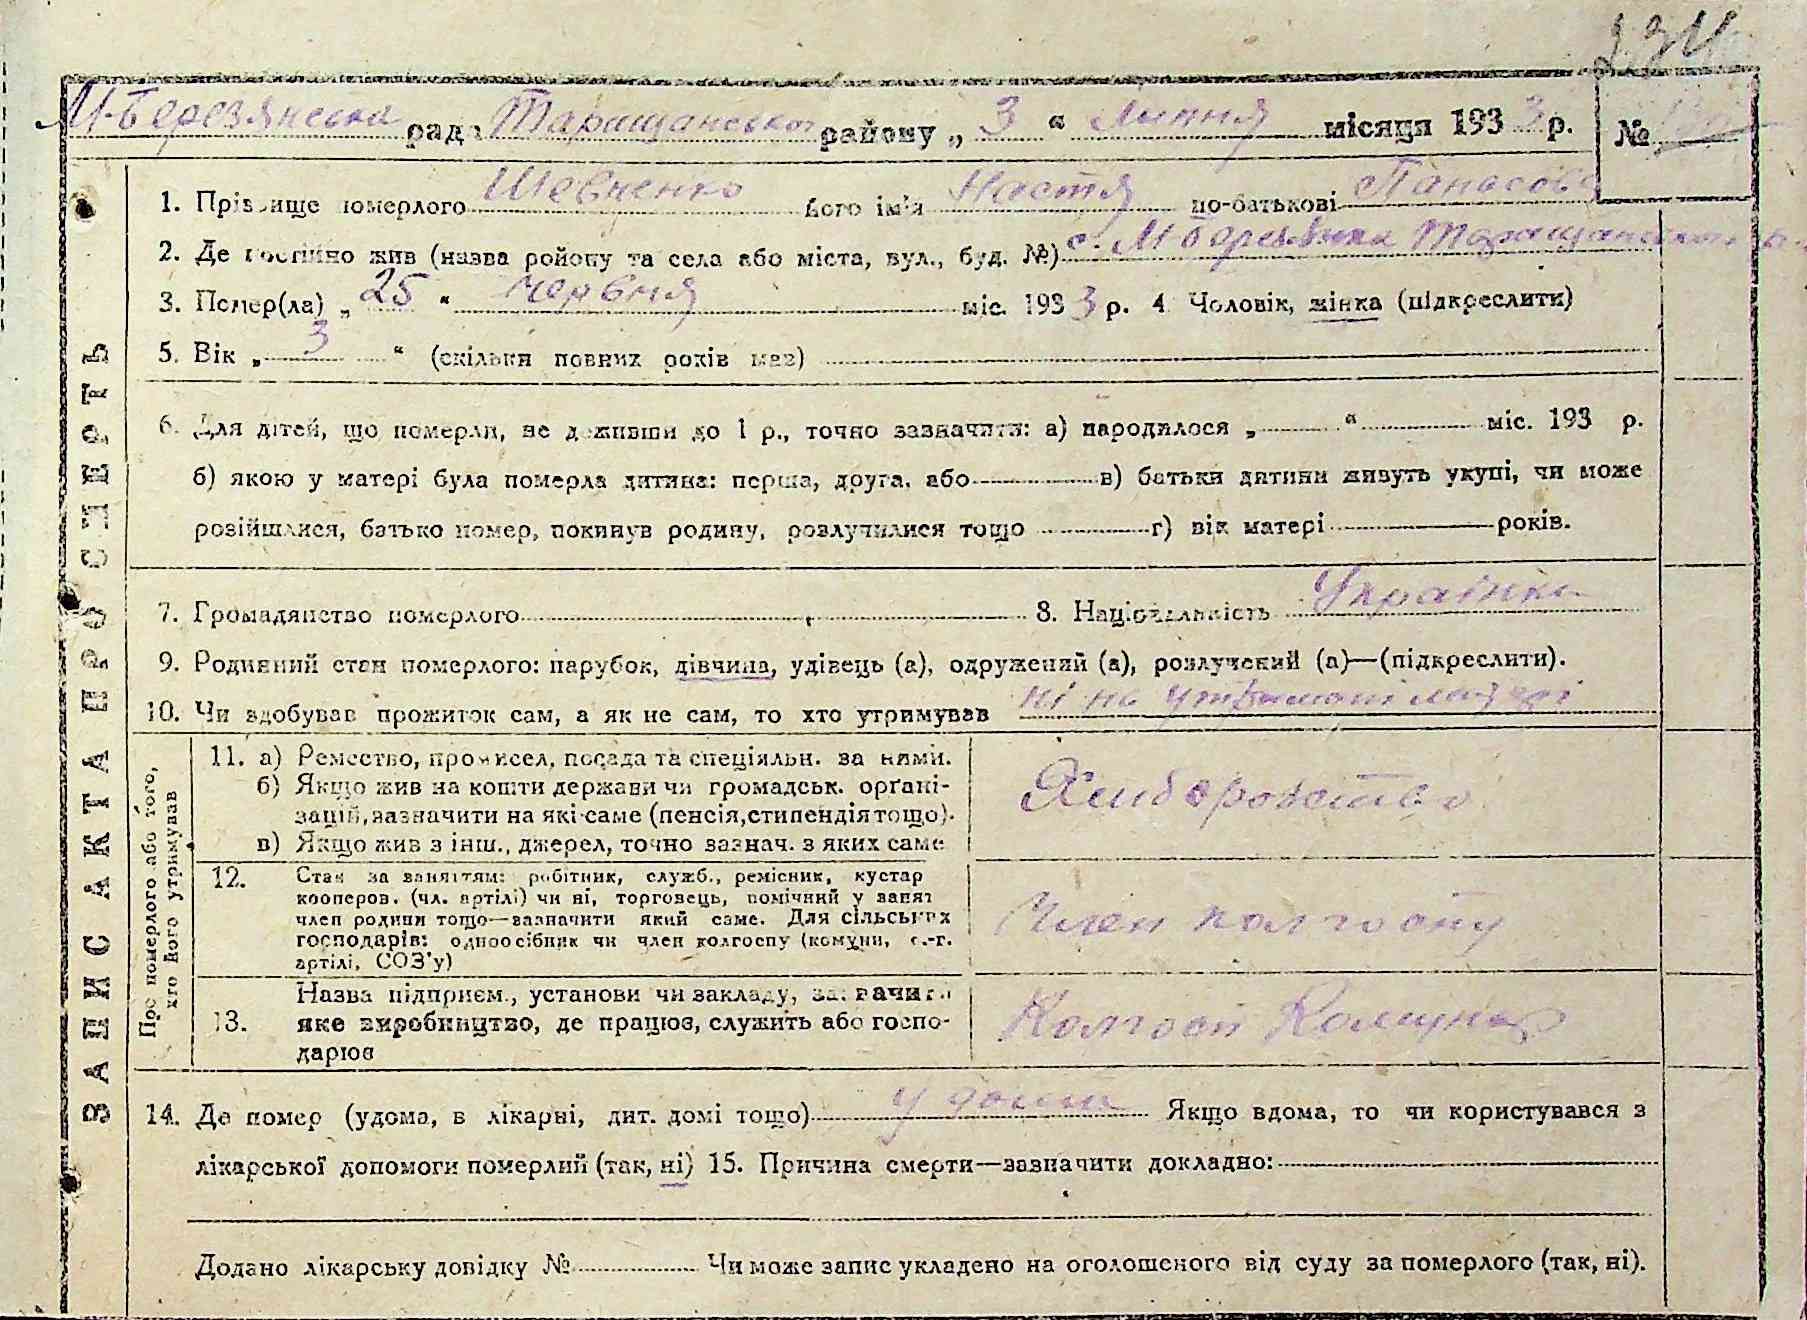 234
М-Березянська рада Таращанського району „ 3 “ Липня місяця 1933 р. №
1. Прізвище померлого Шевченко його ім'я Настя по-батькові Панасова
2. Де постійно жив (назва району та села або міста, вул., буд. №) с. М Березянка Таращанського р.
3. Помер(ла) „ 25 “ Червня міс. 1933 р. 4 Чоловік, жінка (підкреслити)
5. Вік „ 3 “ (скільки повних років мав)
6. Для дітей, що померли, не доживши до 1 р., точно зазначити: а) народилося „ “ міс. 193 р.
б) якою у матері була померла дитина: перша, друга, або в) батьки дитини живуть укупі, чи може
розійшлися, батько помер, покинув родину, розлучилися тощо г) вік матері років.
7. Громадянство померлого 8. Національність Українка
9. Родинний стан померлого: парубок, дівчина, удівець (а), одружений (а), розлучений (а)—(підкреслити).
10. Чи здобував прожиток сам, а як не сам, то хто утримував ні на утриманні матері
ЗАПИС АКТА ПРО СМЕРТЬ
Про померлого або того, хто його утримував
11. а) Ремество, промисел, посада та спеціяльн. за ними.
б) Якщо жив на кошти держави чи громадськ. орґані-
зацій, зазначити на які-саме (пенсія, стипендія тощо).
в) Якщо жив з інш., джерел, точно зазнач. з яких саме
Хліборобство
12. Стан за заняттям: робітник, служб., ремісник, кустар
кооперов. (чл. артілі) чи ні, торговець, помічний у занят
член родини тощо—зазначити який саме. Для сільських
господарів: одноосібник чи член колгоспу (комуни, с.-г.
артілі, СОЗ'у)
Член колгоспу
Назва підприєм., установи чи закладу, зазначити
13. яке виробництво, де працює, служить або госпо-
дарює
Колгосп Комунар
14. Де помер (удома, в лікарні, дит. домі тощо) у дома Якщо вдома, то чи користувався з
лікарської допомоги померлий (так, ні) 15. Причина смерти—зазначити докладно:
Додано лікарську довідку № Чи може запис укладено на оголошеного від суду за померлого (так, ні).